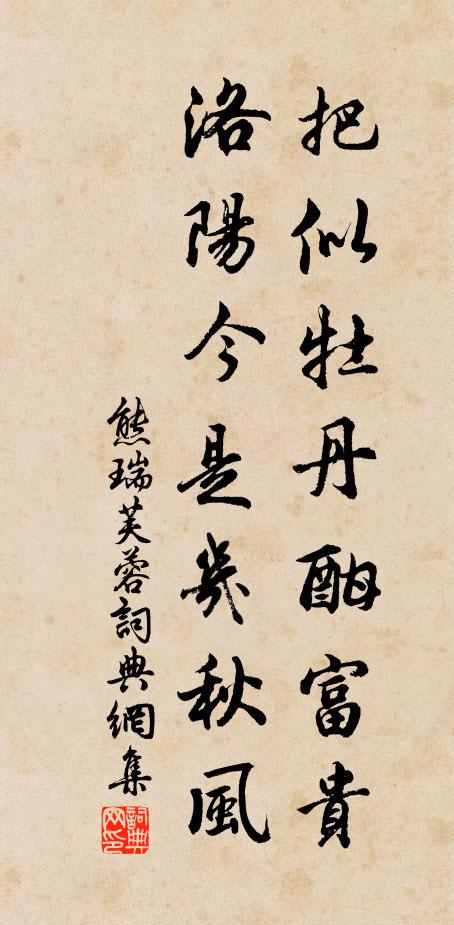 把似牡丹酣富貴
洛陽今是幾秋風
熊瑞芙蓉詞典網集
詞典
网印